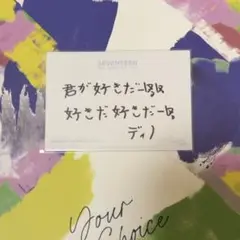 SEVENTEEN
君が好きだー!!
好きだ好きだー!!
ディノ
Your
Choice